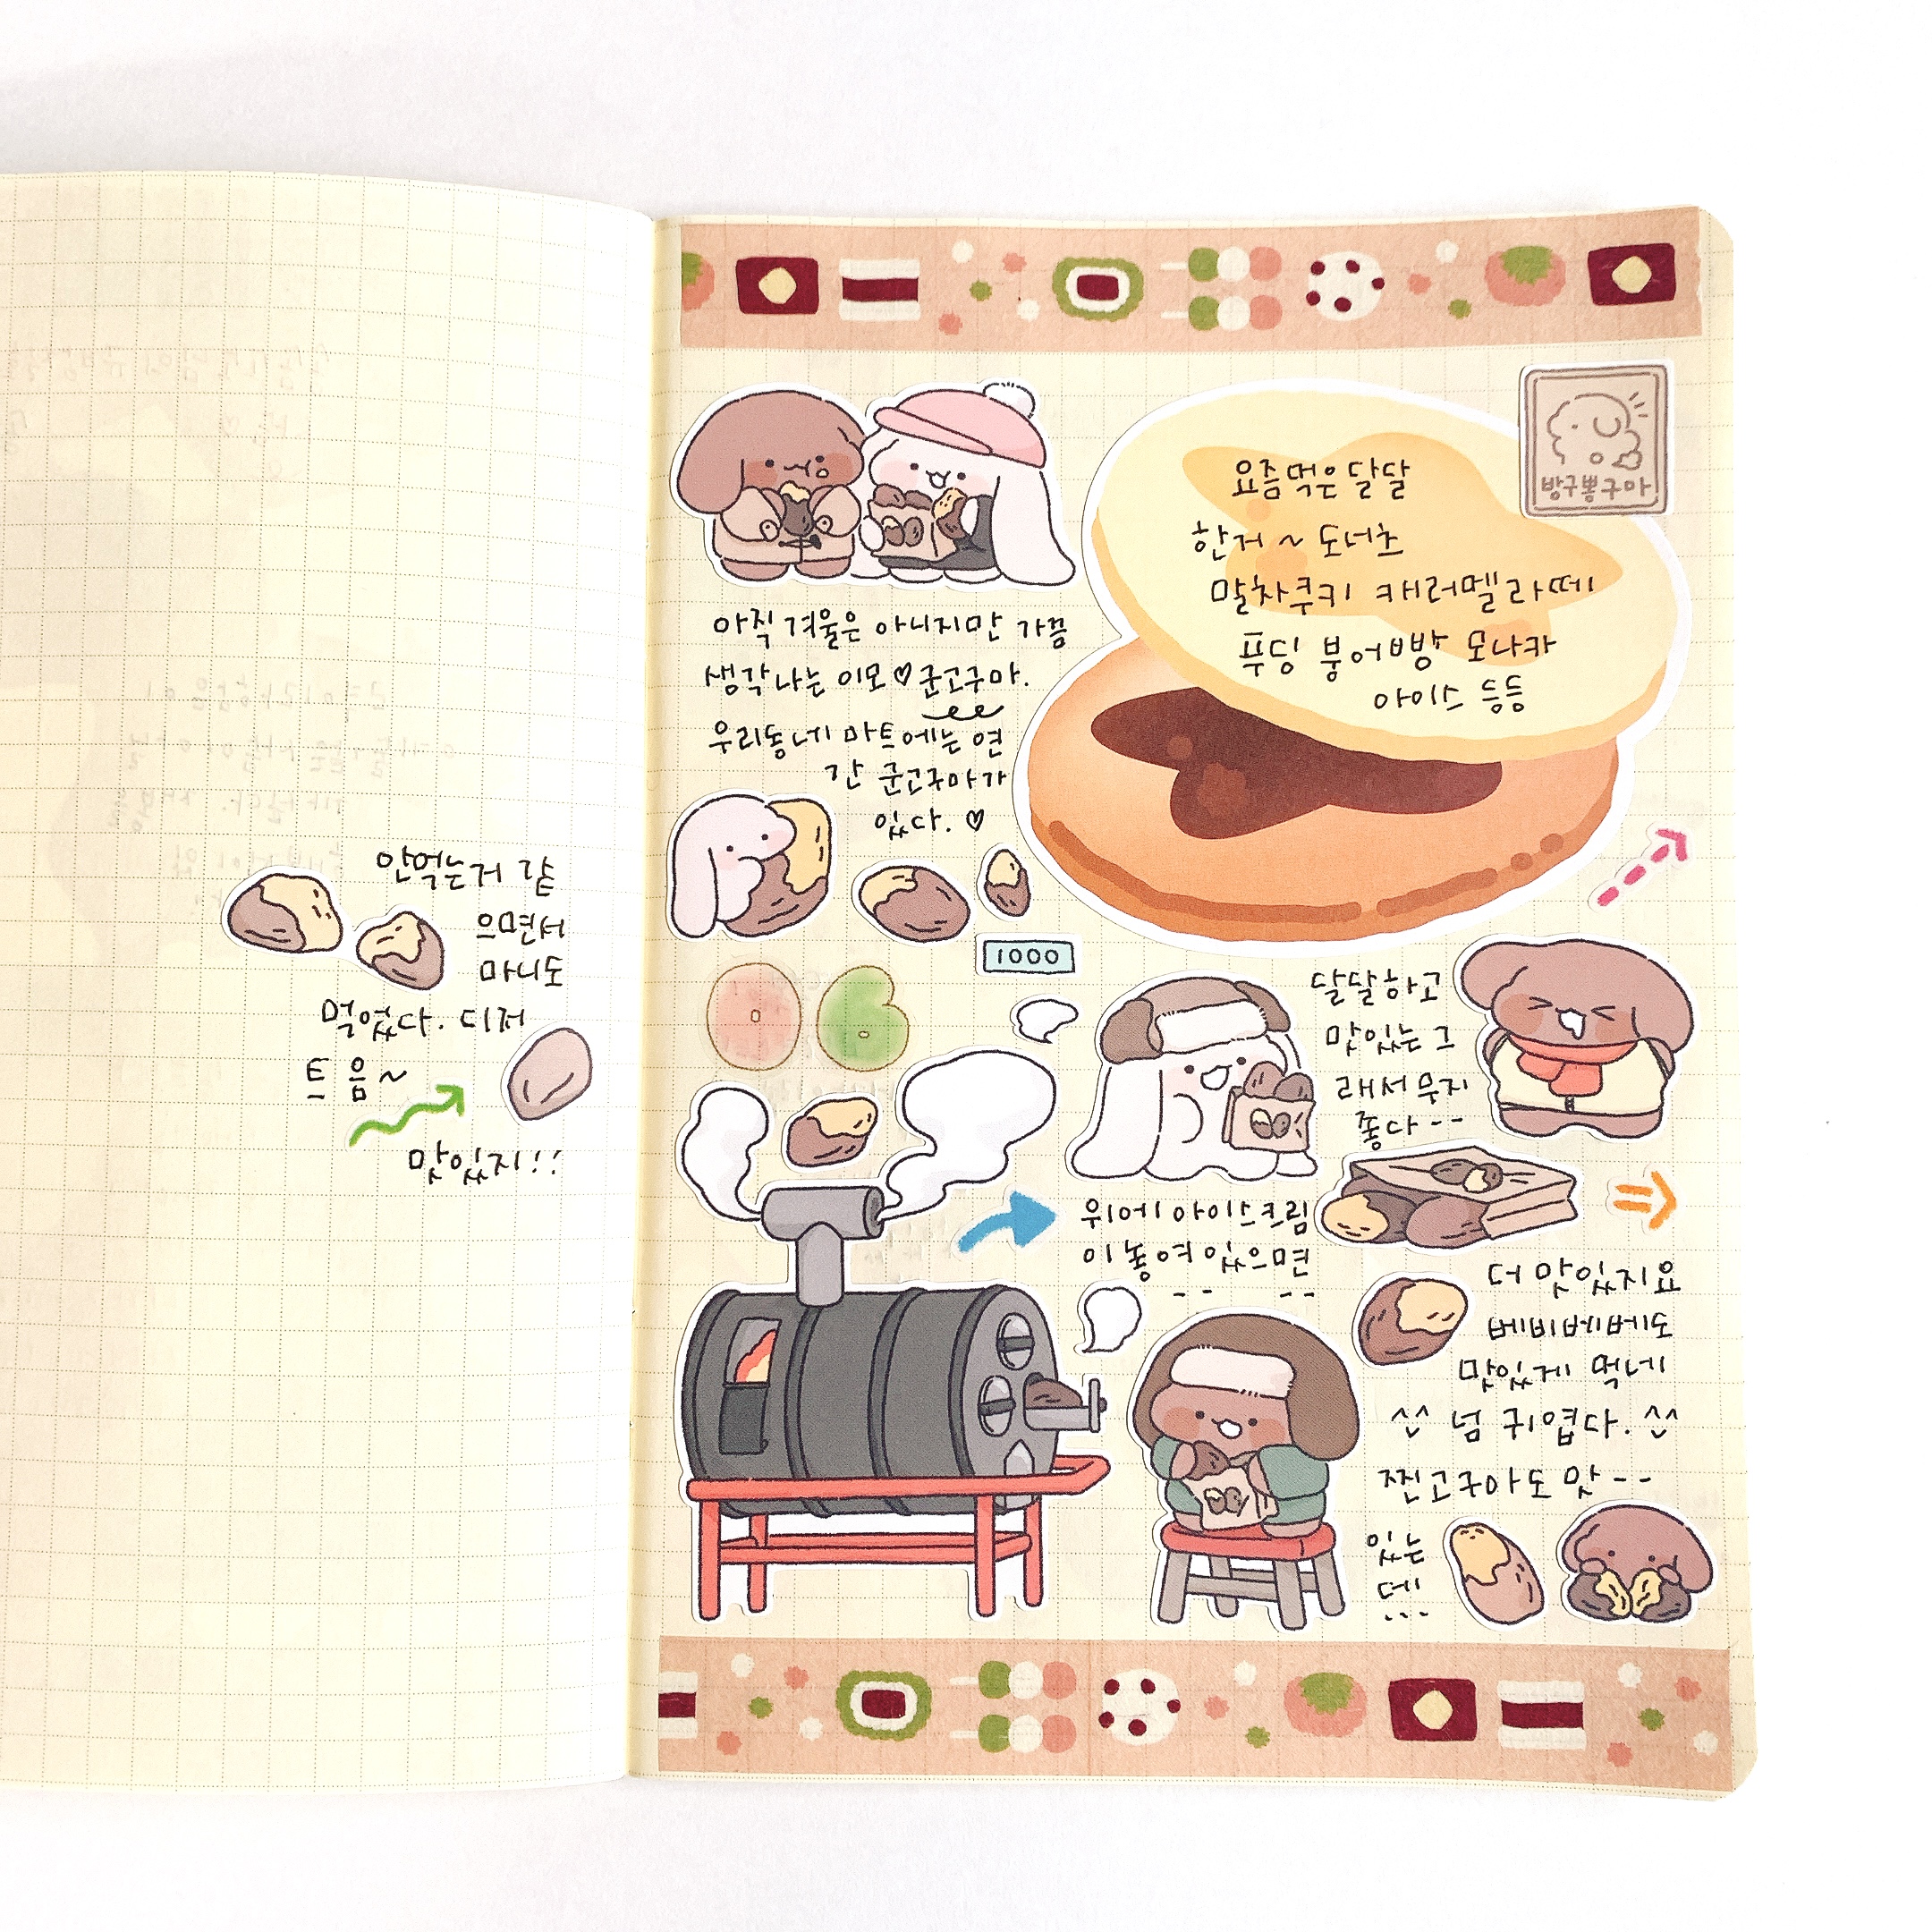 안먹는거 같
으면서
마니도
먹었다. 디저
트 음~
맛있지!!
요즘먹은달달
한거~ 도너츠
말차쿠키 캐러멜라떼
푸딩 붕어빵 모나카
아이스 등등
방구뽕구마
아직 겨울은 아니지만 가끔
생각나는 이모♡군고구마.
우리동네 마트에는 연
간 군고구마가
있다. ♡
1000
06
달달하고
맛있는 그
래서 무지
좋다--
위에 아이스크림
이 놓여있으면
-- --
더 맛있지요
베비베베도
맛있게 먹네
^^ 넘 귀엽다. ^^
찐고구마도 맛--
있는
데...